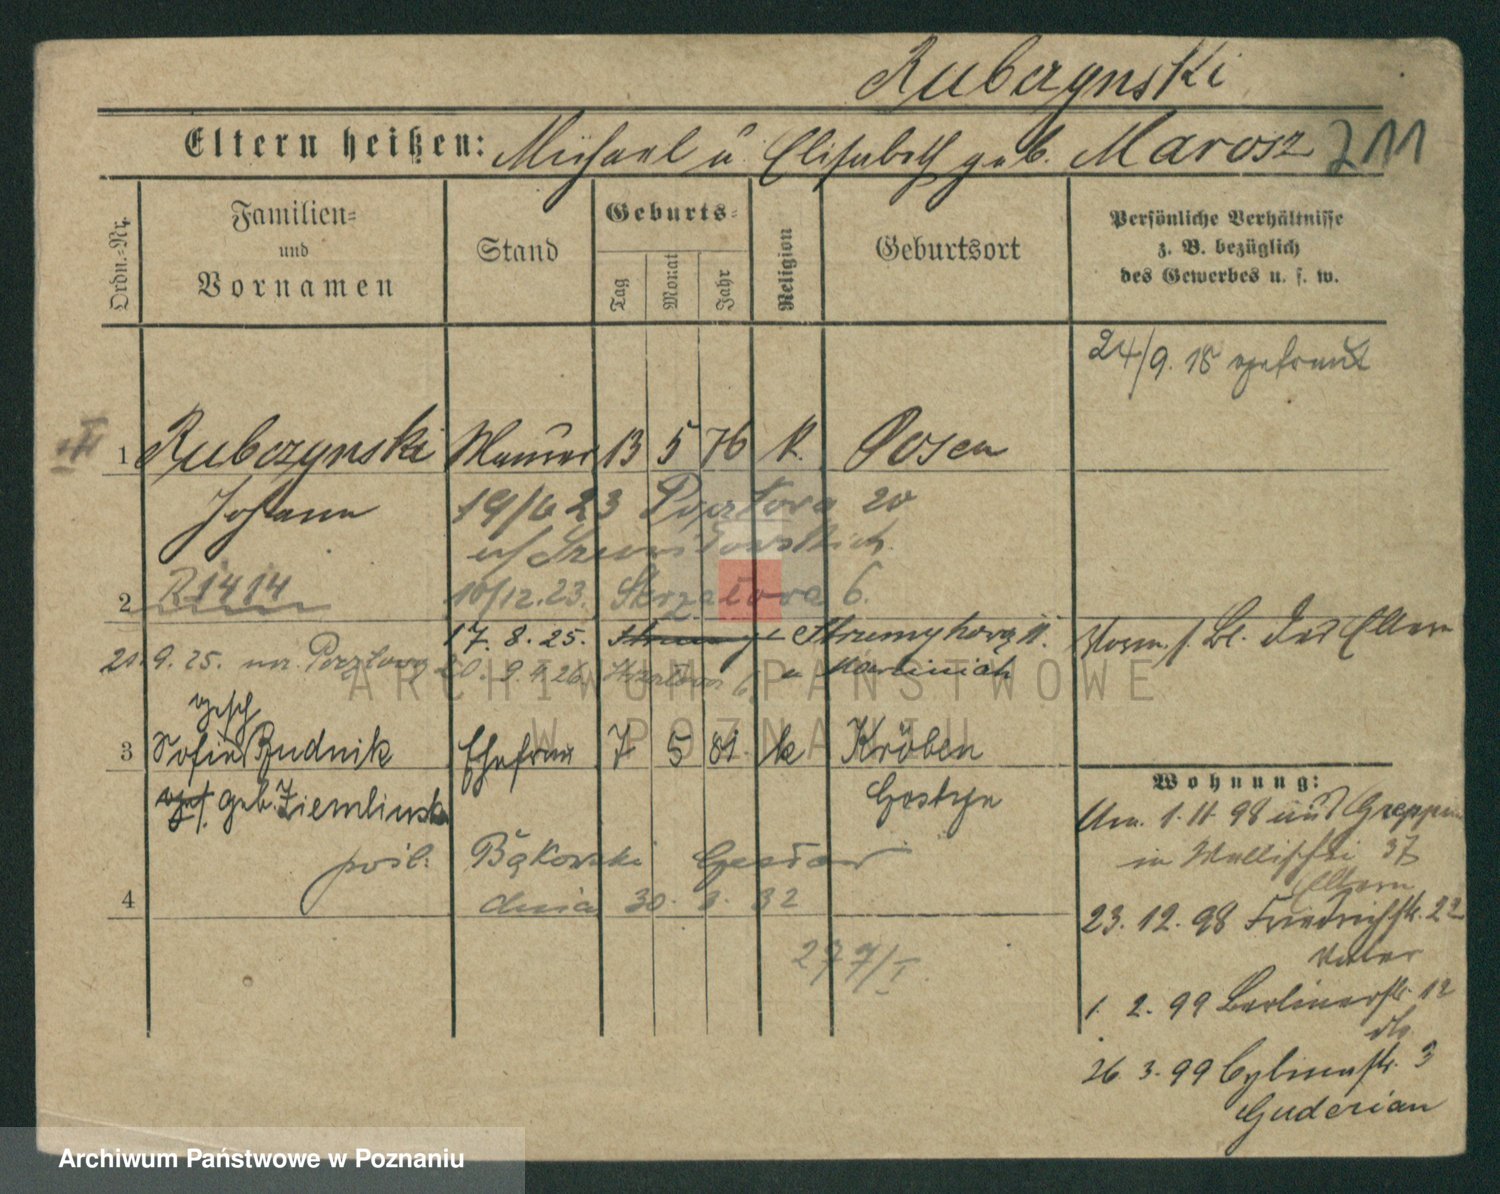 Rubczynski
Eltern heißen: Michael u. Elisabeth geb. Marosz 211
Ordn.-Nr.
Familien-
und
Vornamen
Stand
Geburts-
Tag
Monat
Jahr
Religion
Geburtsort
Persönliche Verhältnisse
z. B. bezüglich
des Gewerbes u. s. w.
24/9. 18 getraut
1 Rubczynski Maurer 13 5 76 k. Posen
Johann 19/6 23 20
2 R1414 10/12.23. 6.
17. 8. 25. Strumykowa 11.
u Marciniak
Vorm. f. Bl. des Eltern
21. 9. 25. 20. 9. 26. 6
gesch
3 Sofie Rudnik Ehefrau 7 5 81. k Kröben
geb. Ziemlinska Gostyn
pośl. Bąkowski
4 dnia 30. 32
277/I.
Wohnung:
1. 11. 98
in Wallischei 37
Eltern
23. 12. 98 Friedrichstr. 22
Vater
1. 2. 99 Berlinerstr. 12
do
26. 3. 99 3
Guderian
ARCHIWUM PAŃSTWOWE
W POZNANIU
Archiwum Państwowe w Poznaniu